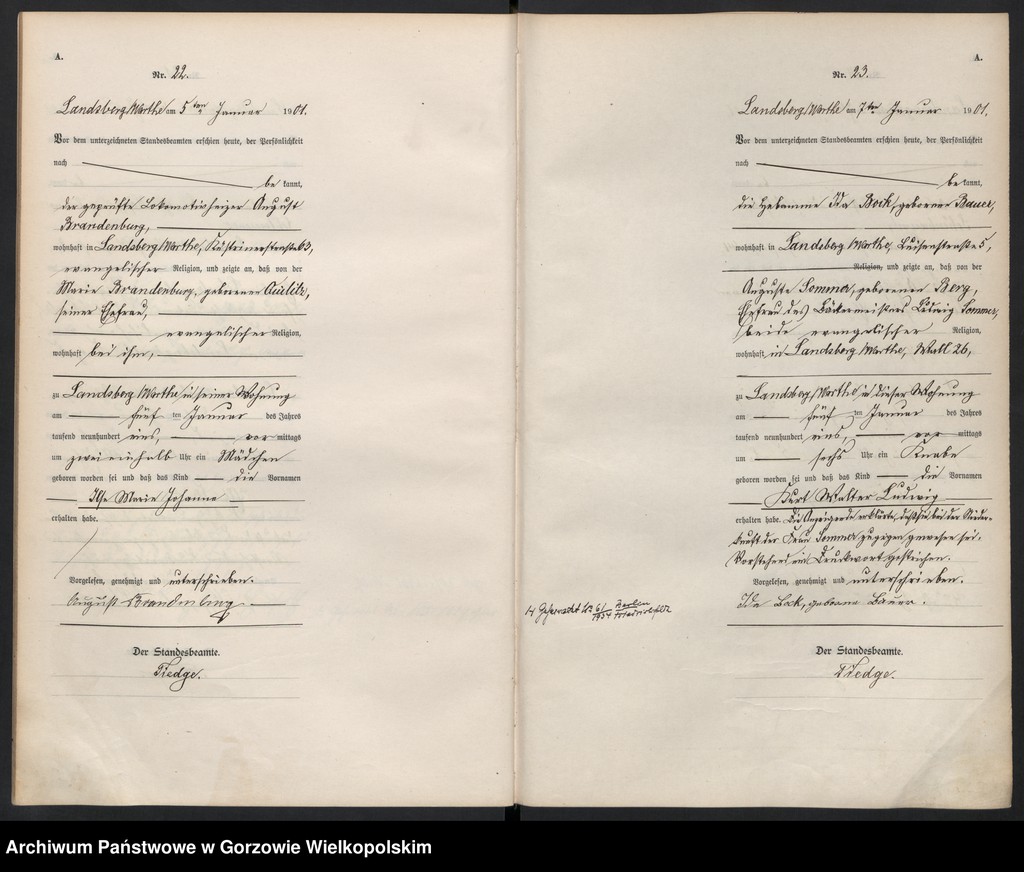 A.
Nr. 22.
Landsberg/Warthe am 5 ten Januar 1901.
Vor dem unterzeichneten Standesbeamten erschien heute, der Persönlichkeit
nach
bekannt,
der geprüfte Lokomotivheizer August
Brandenburg,
wohnhaft in Landsberg/Warthe, Küstrinerstraße 63,
evangelischer Religion, und zeigte an, daß von der
Marie Brandenburg, geborenen
seiner Ehefrau,
evangelischer Religion,
wohnhaft bei ihm,
zu Landsberg/Warthe in seiner Wohnung
am fünf ten Januar des Jahres
tausend neunhundert eins, vor mittags
um zweieinhalb Uhr ein Mädchen
geboren worden sei und daß das Kind die Vornamen
Ilse Marie Johanna
erhalten habe.
Vorgelesen, genehmigt und unterschrieben.
August Brandenburg
Der Standesbeamte.
Tiedge.
A.
Nr. 23.
Landsberg/Warthe am 7 ten Januar 1901.
Vor dem unterzeichneten Standesbeamten erschien heute, der Persönlichkeit
nach
bekannt,
die Hebamme Ida Bock, geborene Bauer,
wohnhaft in Landsberg/Warthe, Luisenstraße 5,
Religion, und zeigte an, daß von der
Auguste Sommer, geborenen Berg,
Ehefrau des Bäckermeisters Ludwig Sommer,
beide evangelischer Religion,
wohnhaft in Landsberg/Warthe, Wall 26,
zu Landsberg/Warthe in dieser Wohnung
am fünf ten Januar des Jahres
tausend neunhundert eins, vor mittags
um sechs Uhr ein Knabe
geboren worden sei und daß das Kind die Vornamen
Kurt Walter Ludwig
erhalten habe. Die Anzeigende erklärte, daß sie bei der Nieder-
kunft der Frau Sommer zugegen gewesen sei.
Vorstehend ein Druckwort gestrichen.
Vorgelesen, genehmigt und unterschrieben.
Ida Bock, geborene Bauer.
H Geheiratet Nr 61/1934 Berlin
Der Standesbeamte.
Tiedge.
Archiwum Państwowe w Gorzowie Wielkopolskim